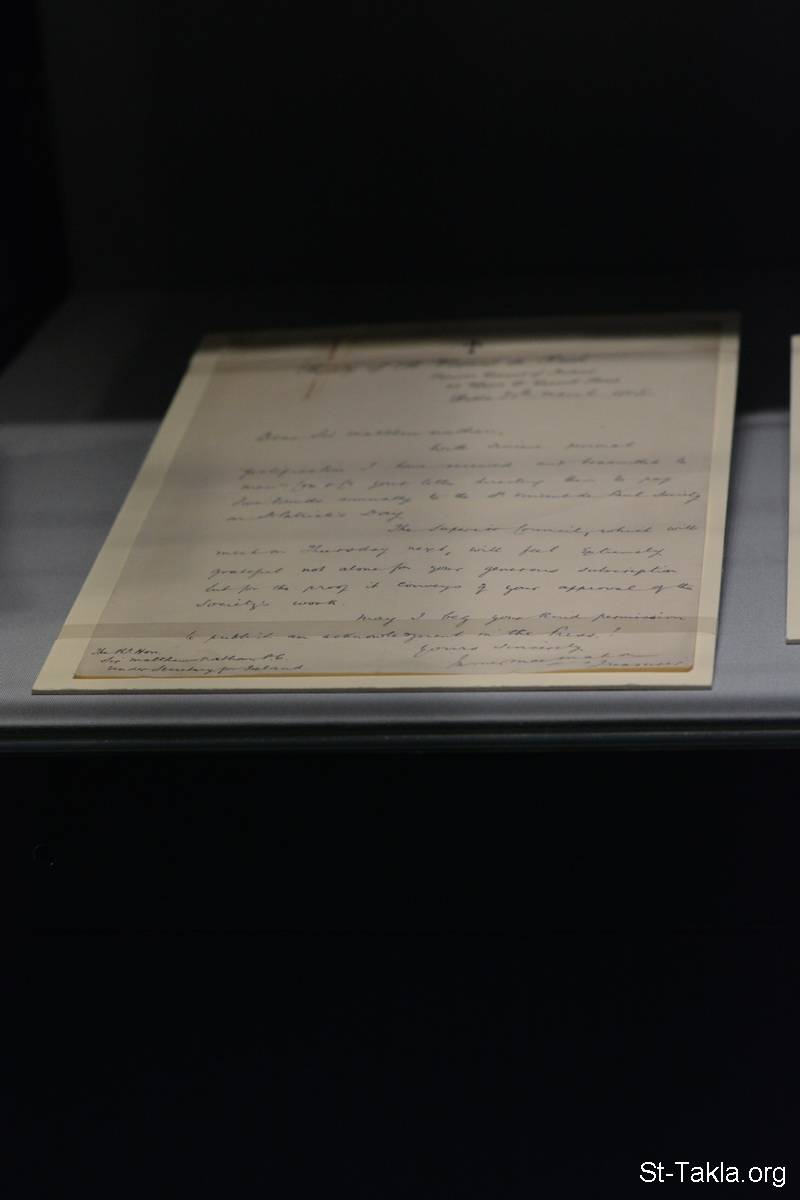 Society of St Vincent de Paul
Superior Council of Ireland
Dublin 30th March
Dear Sir Matthew Nathan,
With sincere personal
gratification I have received and transmitted to
your letter directing them to pay
annually to the St Vincent de Paul Society
on St Patrick's Day.
The Superior Council, which will
meet on Thursday next, will feel extremely
grateful not alone for your generous subscription
but for the proof it conveys of your approval of the
Society's work.
May I beg your kind permission
to publish an acknowledgment in the Press?
Yours sincerely,
Treasurer
The Rt. Hon.
Sir Matthew Nathan P.C.
Under Secretary for Ireland
St-Takla.org